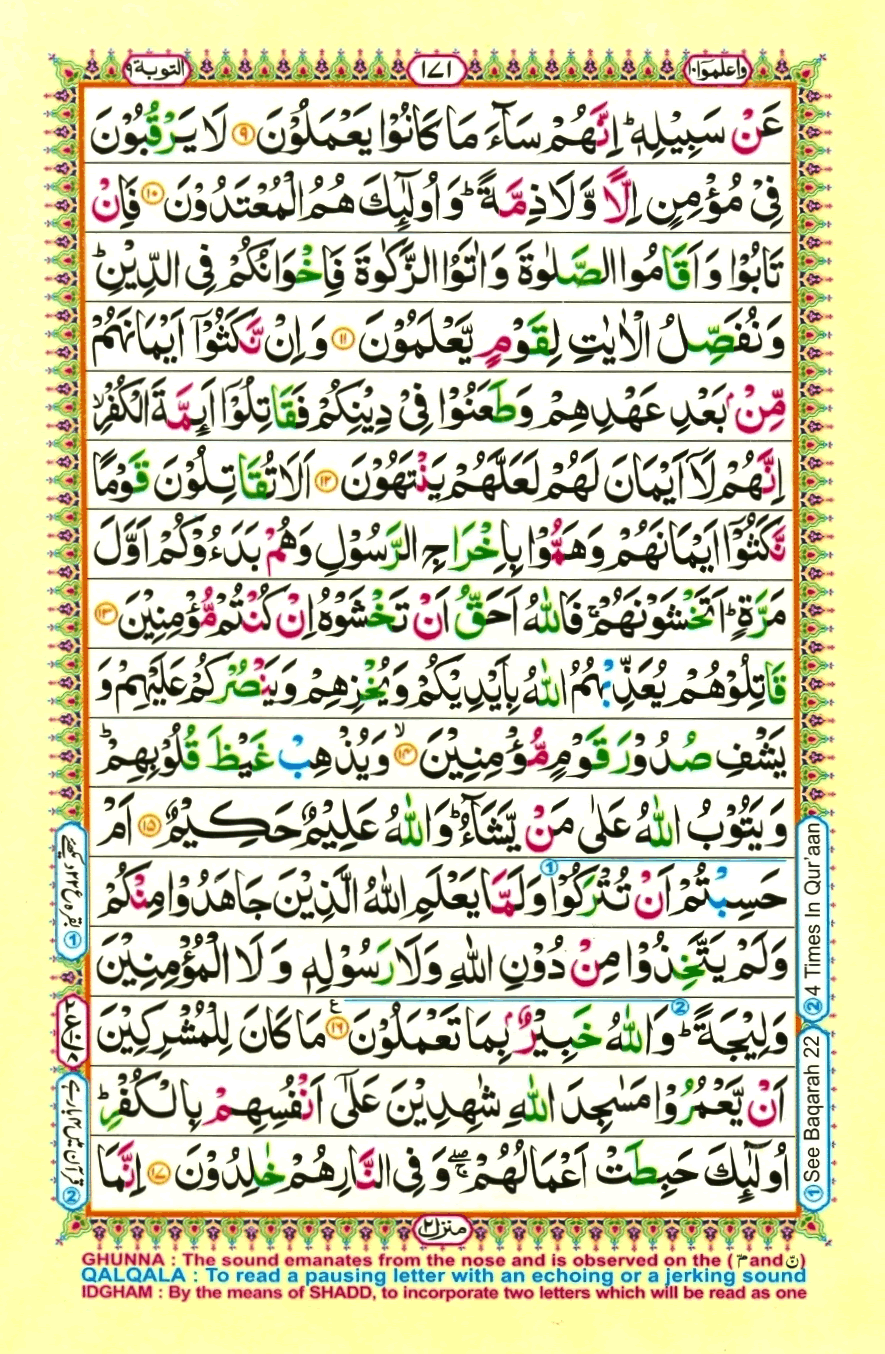 واعلموا ١٠
١٧١
التوبة ٩
عَنْ سَبِيْلِهٖ ؕ اِنَّهُمْ سَآءَ مَا كَانُوْا يَعْمَلُوْنَ ﴿۹﴾ لَا يَرْقُبُوْنَ
فِىْ مُؤْمِنٍ اِلًّا وَّلَا ذِمَّةً ؕ وَاُولٰٓئِكَ هُمُ الْمُعْتَدُوْنَ ﴿۱۰﴾ فَاِنْ
تَابُوْا وَاَقَامُوا الصَّلٰوةَ وَاٰتَوُا الزَّكٰوةَ فَاِخْوَانُكُمْ فِى الدِّيْنِ ؕ
وَنُفَصِّلُ الْاٰيٰتِ لِقَوْمٍ يَّعْلَمُوْنَ ﴿۱۱﴾ وَاِنْ نَّكَثُوْۤا اَيْمَانَهُمْ
مِّنْۢ بَعْدِ عَهْدِهِمْ وَطَعَنُوْا فِىْ دِيْنِكُمْ فَقَاتِلُوْۤا اَئِمَّةَ الْكُفْرِ ۙ
اِنَّهُمْ لَاۤ اَيْمَانَ لَهُمْ لَعَلَّهُمْ يَنْتَهُوْنَ ﴿۱۲﴾ اَلَا تُقَاتِلُوْنَ قَوْمًا
نَّكَثُوْۤا اَيْمَانَهُمْ وَهَمُّوْا بِاِخْرَاجِ الرَّسُوْلِ وَهُمْ بَدَءُوْكُمْ اَوَّلَ
مَرَّةٍ ؕ اَتَخْشَوْنَهُمْ ۚ فَاللّٰهُ اَحَقُّ اَنْ تَخْشَوْهُ اِنْ كُنْتُمْ مُّؤْمِنِيْنَ ﴿۱۳﴾
قَاتِلُوْهُمْ يُعَذِّبْهُمُ اللّٰهُ بِاَيْدِيْكُمْ وَيُخْزِهِمْ وَيَنْصُرْكُمْ عَلَيْهِمْ وَ
يَشْفِ صُدُوْرَ قَوْمٍ مُّؤْمِنِيْنَ ۙ﴿۱۴﴾ وَيُذْهِبْ غَيْظَ قُلُوْبِهِمْ ؕ
وَيَتُوْبُ اللّٰهُ عَلٰى مَنْ يَّشَآءُ ؕ وَاللّٰهُ عَلِيْمٌ حَكِيْمٌ ﴿۱۵﴾ اَمْ
حَسِبْتُمْ اَنْ تُتْرَكُوْا وَلَمَّا يَعْلَمِ اللّٰهُ الَّذِيْنَ جَاهَدُوْا مِنْكُمْ
وَلَمْ يَتَّخِذُوْا مِنْ دُوْنِ اللّٰهِ وَلَا رَسُوْلِهٖ وَلَا الْمُؤْمِنِيْنَ
وَلِيْجَةً ؕ وَاللّٰهُ خَبِيْرٌۢ بِمَا تَعْمَلُوْنَ ﴿۱۶﴾ مَا كَانَ لِلْمُشْرِكِيْنَ
اَنْ يَّعْمُرُوْا مَسٰجِدَ اللّٰهِ شٰهِدِيْنَ عَلٰٓى اَنْفُسِهِمْ بِالْكُفْرِ ؕ
اُولٰٓئِكَ حَبِطَتْ اَعْمَالُهُمْ ۖۚ وَفِى النَّارِ هُمْ خٰلِدُوْنَ ﴿۱۷﴾ اِنَّمَا
② 4 Times In Qur'aan
① See Baqarah 22
منزل ٢
GHUNNA : The sound emanates from the nose and is observed on the ( مّ and نّ )
QALQALA : To read a pausing letter with an echoing or a jerking sound
IDGHAM : By the means of SHADD, to incorporate two letters which will be read as one